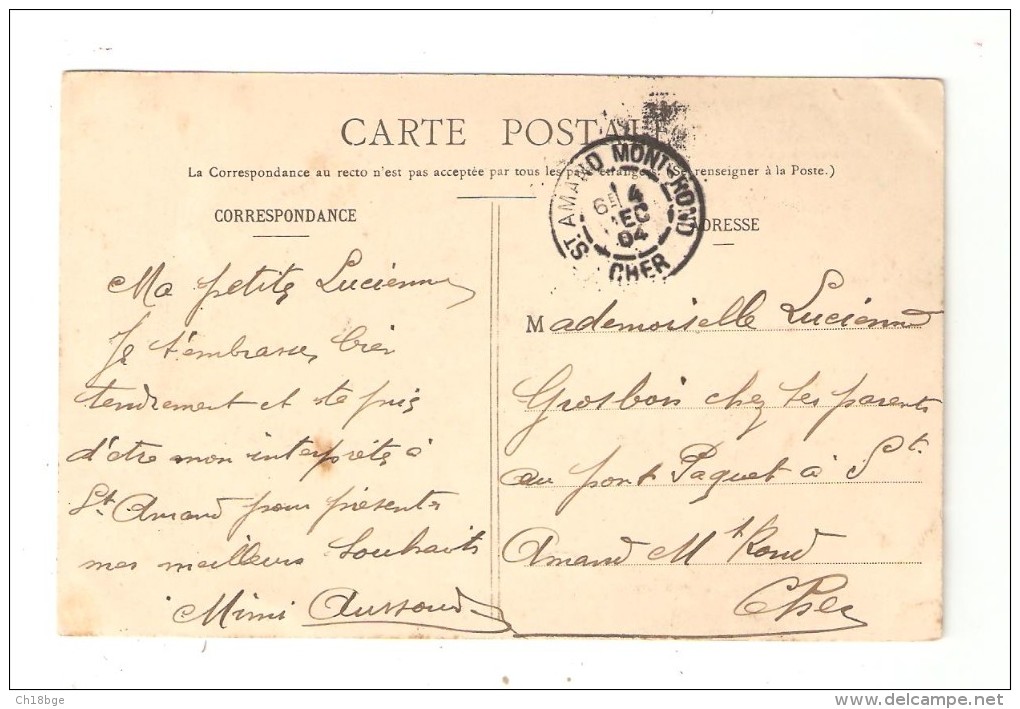 CARTE POSTALE
La Correspondance au recto n'est pas acceptée par tous les pays étrangers. (Se renseigner à la Poste.)
CORRESPONDANCE
Ma petite Lucienne
Je t'embrasse bien
tendrement et te prie
d'être mon interprète à
St Amand pour présenter
mes meilleurs souhaits
Mimi
ST AMAND MONT-ROND
4
DEC
04
CHER
ADRESSE
Mademoiselle Lucienne
Grosbois chez ses parents
au pont Paquet à St
Amand Mt Rond
Cher
Ch18bge
www.delcampe.net